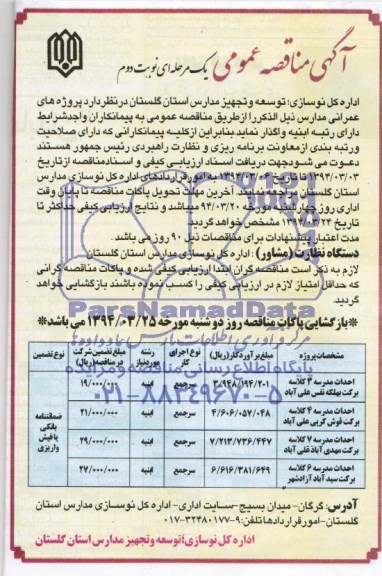 آگهی مناقصه عمومی یک مرحله ای نوبت دوم
اداره کل نوسازی؛ توسعه و تجهیز مدارس استان گلستان در نظر دارد پروژه های
عمرانی مدارس ذیل الذکر را از طریق مناقصه عمومی به پیمانکاران واجد شرایط
دارای رتبه ابنیه واگذار نماید بنابراین از کلیه پیمانکارانی که دارای صلاحیت
و رتبه بندی از معاونت برنامه ریزی و نظارت راهبردی رئیس جمهور هستند
دعوت می شود جهت دریافت اسناد ارزیابی کیفی و اسناد مناقصه از تاریخ
۱۳۹۴/۰۳/۰۳ تا تاریخ ۱۳۹۴/۰۳/۰۶ به امور قراردادهای اداره کل نوسازی مدارس
استان گلستان مراجعه نمایند. آخرین مهلت تحویل پاکات مناقصه تا پایان وقت
اداری روز چهارشنبه مورخه ۹۴/۰۳/۲۰ میباشد و نتایج ارزیابی کیفی حداکثر تا
تاریخ ۱۳۹۴/۰۳/۲۴ مشخص خواهد گردید.
مدت اعتبار پیشنهادات برای مناقصات ذیل ۹۰ روز می باشد.
دستگاه نظارت (مشاور): اداره کل نوسازی مدارس استان گلستان
لازم به ذکر است مناقصه گران ابتدا ارزیابی کیفی شده و پاکات مناقصه گرانی
که حداقل امتیاز لازم در ارزیابی کیفی را کسب نموده باشند بازگشایی خواهد
گردید.
*بازگشایی پاکات مناقصه روز دوشنبه مورخه ۱۳۹۴/۰۳/۲۵ می باشد*
ParsNamadData
پایگاه اطلاع رسانی مناقصه و مزایده
۰۲۱-۸۸۳۴۹۶۷۰-۵
مشخصات پروژه مبلغ برآورد کار (ریال) نوع اجرای کار رشته مورد نیاز مبلغ تضمین شرکت در مناقصه (ریال) نوع تضمین
احداث مدرسه ۳ کلاسه برکت بهلکه نفس علی آباد ۳/۹۴۸/۱۹۴/۲۰۱ سرجمع ابنیه ۱۹/۰۰۰/۰۰۰
احداث مدرسه ۴ کلاسه برکت قوش کرپی علی آباد ۴/۶۰۶/۰۵۷/۰۴۸ سرجمع ابنیه ۲۱/۰۰۰/۰۰۰
احداث مدرسه ۷ کلاسه برکت مهدی آباد قلی آباد ۷/۲۱۳/۷۳۶/۴۴۷ سرجمع ابنیه ۲۹/۰۰۰/۰۰۰
احداث مدرسه ۶ کلاسه برکت سید آباد آزادشهر ۶/۶۱۶/۳۸۱/۶۴۹ سرجمع ابنیه ۲۷/۰۰۰/۰۰۰
ضمانتنامه بانکی یا فیش واریزی
آدرس: گرگان- میدان بسیج- سایت اداری- اداره کل نوسازی مدارس استان
گلستان- امور قراردادها تلفن: ۹-۳۲۴۸۰۱۷۷-۰۱۷
اداره کل نوسازی؛ توسعه و تجهیز مدارس استان گلستان